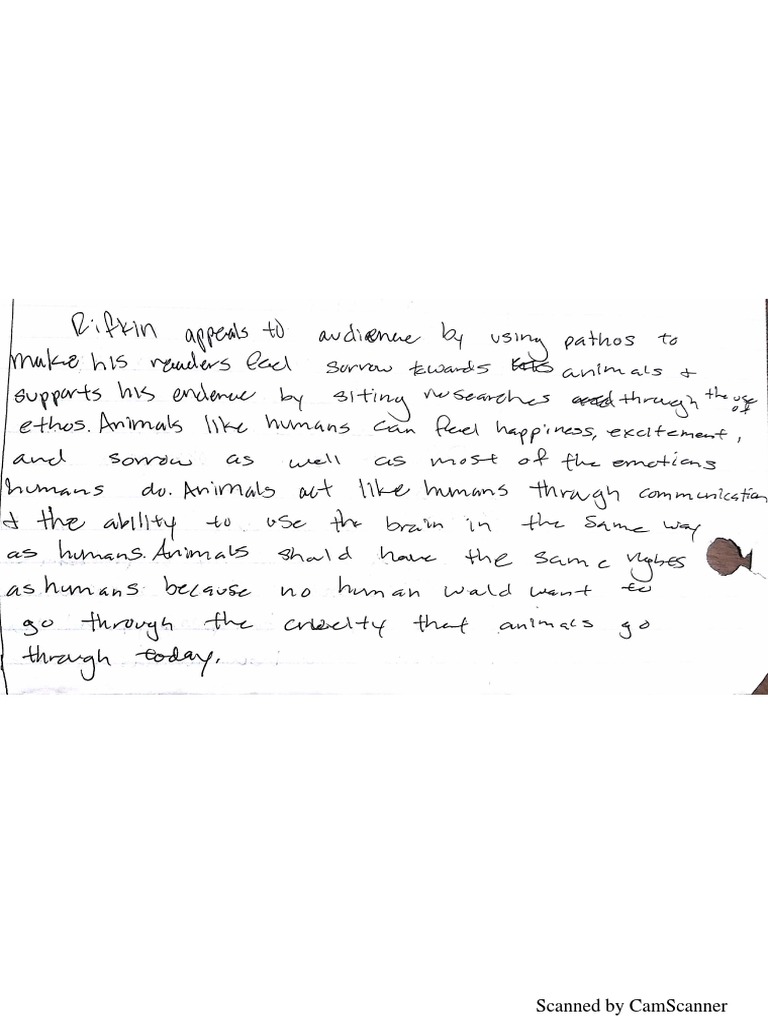 Rifkin appeals to audience by using pathos to
make his readers feel sorrow towards animals &
supports his evidence by siting researches through the use of
ethos. Animals like humans can feel happiness, excitement,
and sorrow as well as most of the emotions
humans do. Animals act like humans through communication
& the ability to use the brain in the same way
as humans. Animals should have the same rights
as humans because no human would want to
go through the cruelty that animals go
through today.
Scanned by CamScanner